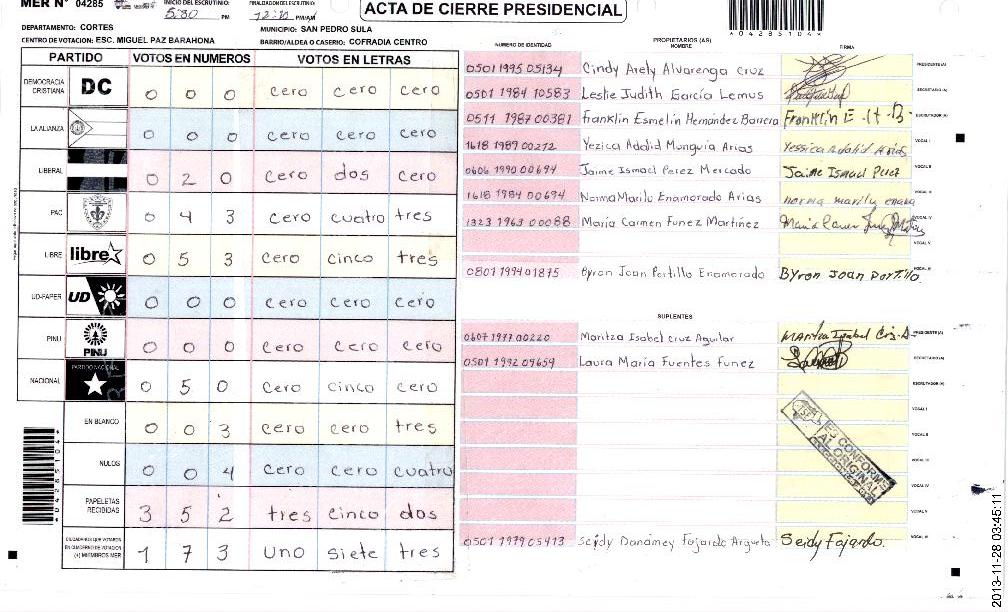 MER N° 04285
INICIO DEL ESCRUTINIO:
5:30 PM
FINALIZACION DEL ESCRUTINIO:
PM/AM
ACTA DE CIERRE PRESIDENCIAL
*04285104*
DEPARTAMENTO: CORTES
MUNICIPIO: SAN PEDRO SULA
CENTRO DE VOTACION: ESC. MIGUEL PAZ BARAHONA
BARRIO/ALDEA O CASERIO: COFRADIA CENTRO
PARTIDO VOTOS EN NUMEROS VOTOS EN LETRAS
DEMOCRACIA CRISTIANA DC 0 0 0 cero cero cero
LA ALIANZA 0 0 0 cero cero cero
LIBERAL 0 2 0 cero dos cero
PAC 0 4 3 cero cuatro tres
LIBRE libre 0 5 3 cero cinco tres
UD-FAPER UD 0 0 0 cero cero cero
PINU PINU 0 0 0 cero cero cero
NACIONAL PARTIDO NACIONAL 0 5 0 cero cinco cero
EN BLANCO 0 0 3 cero cero tres
NULOS 0 0 4 cero cero cuatro
PAPELETAS RECIBIDAS 3 5 2 tres cinco dos
CIUDADANOS QUE VOTARON EN CUADERNO DE VOTACION (+) MIEMBROS MER 1 7 3 uno siete tres
*04285104*
NUMERO DE IDENTIDAD PROPIETARIOS (AS) NOMBRE FIRMA
0501 1995 05134 Cindy Arely Alvarenga Cruz PRESIDENTE(A)
0501 1984 10583 Leslie Judith García Lemus SECRETARIO(A)
0511 1987 00381 Franklin Esmelin Hernández Barrera Franklin E. H. B ESCRUTADOR (A)
1618 1989 00272 Yezica Adalid Munguia Arias Yessica Adalid Arias VOCAL I
0606 1990 00694 Jaime Ismael Perez Mercado Jaime Ismael Perez VOCAL II
1618 1984 00694 Norma Marilu Enamorado Arias norma marilu enama VOCAL III
1323 1963 00088 María Carmen Funez Martínez VOCAL IV
VOCAL V
0801 1994 01875 Byron Joan Portillo Enamorado Byron Joan Portillo VOCAL VI
SUPLENTES
0607 1977 00220 Maritza Isabel Cruz Aguilar Maritza Isabel PRESIDENTE(A)
0501 1992 09659 Laura María Fuentes Funez SECRETARIO(A)
ESCRUTADOR (A)
VOCAL I
VOCAL II
VOCAL III
VOCAL IV
VOCAL V
0501 1979 05413 Seidy Danamey Fajardo Argueta Seidy Fajardo. VOCAL VI
ES CONFORME AL ORIGINAL
2013-11-28 03:45:11